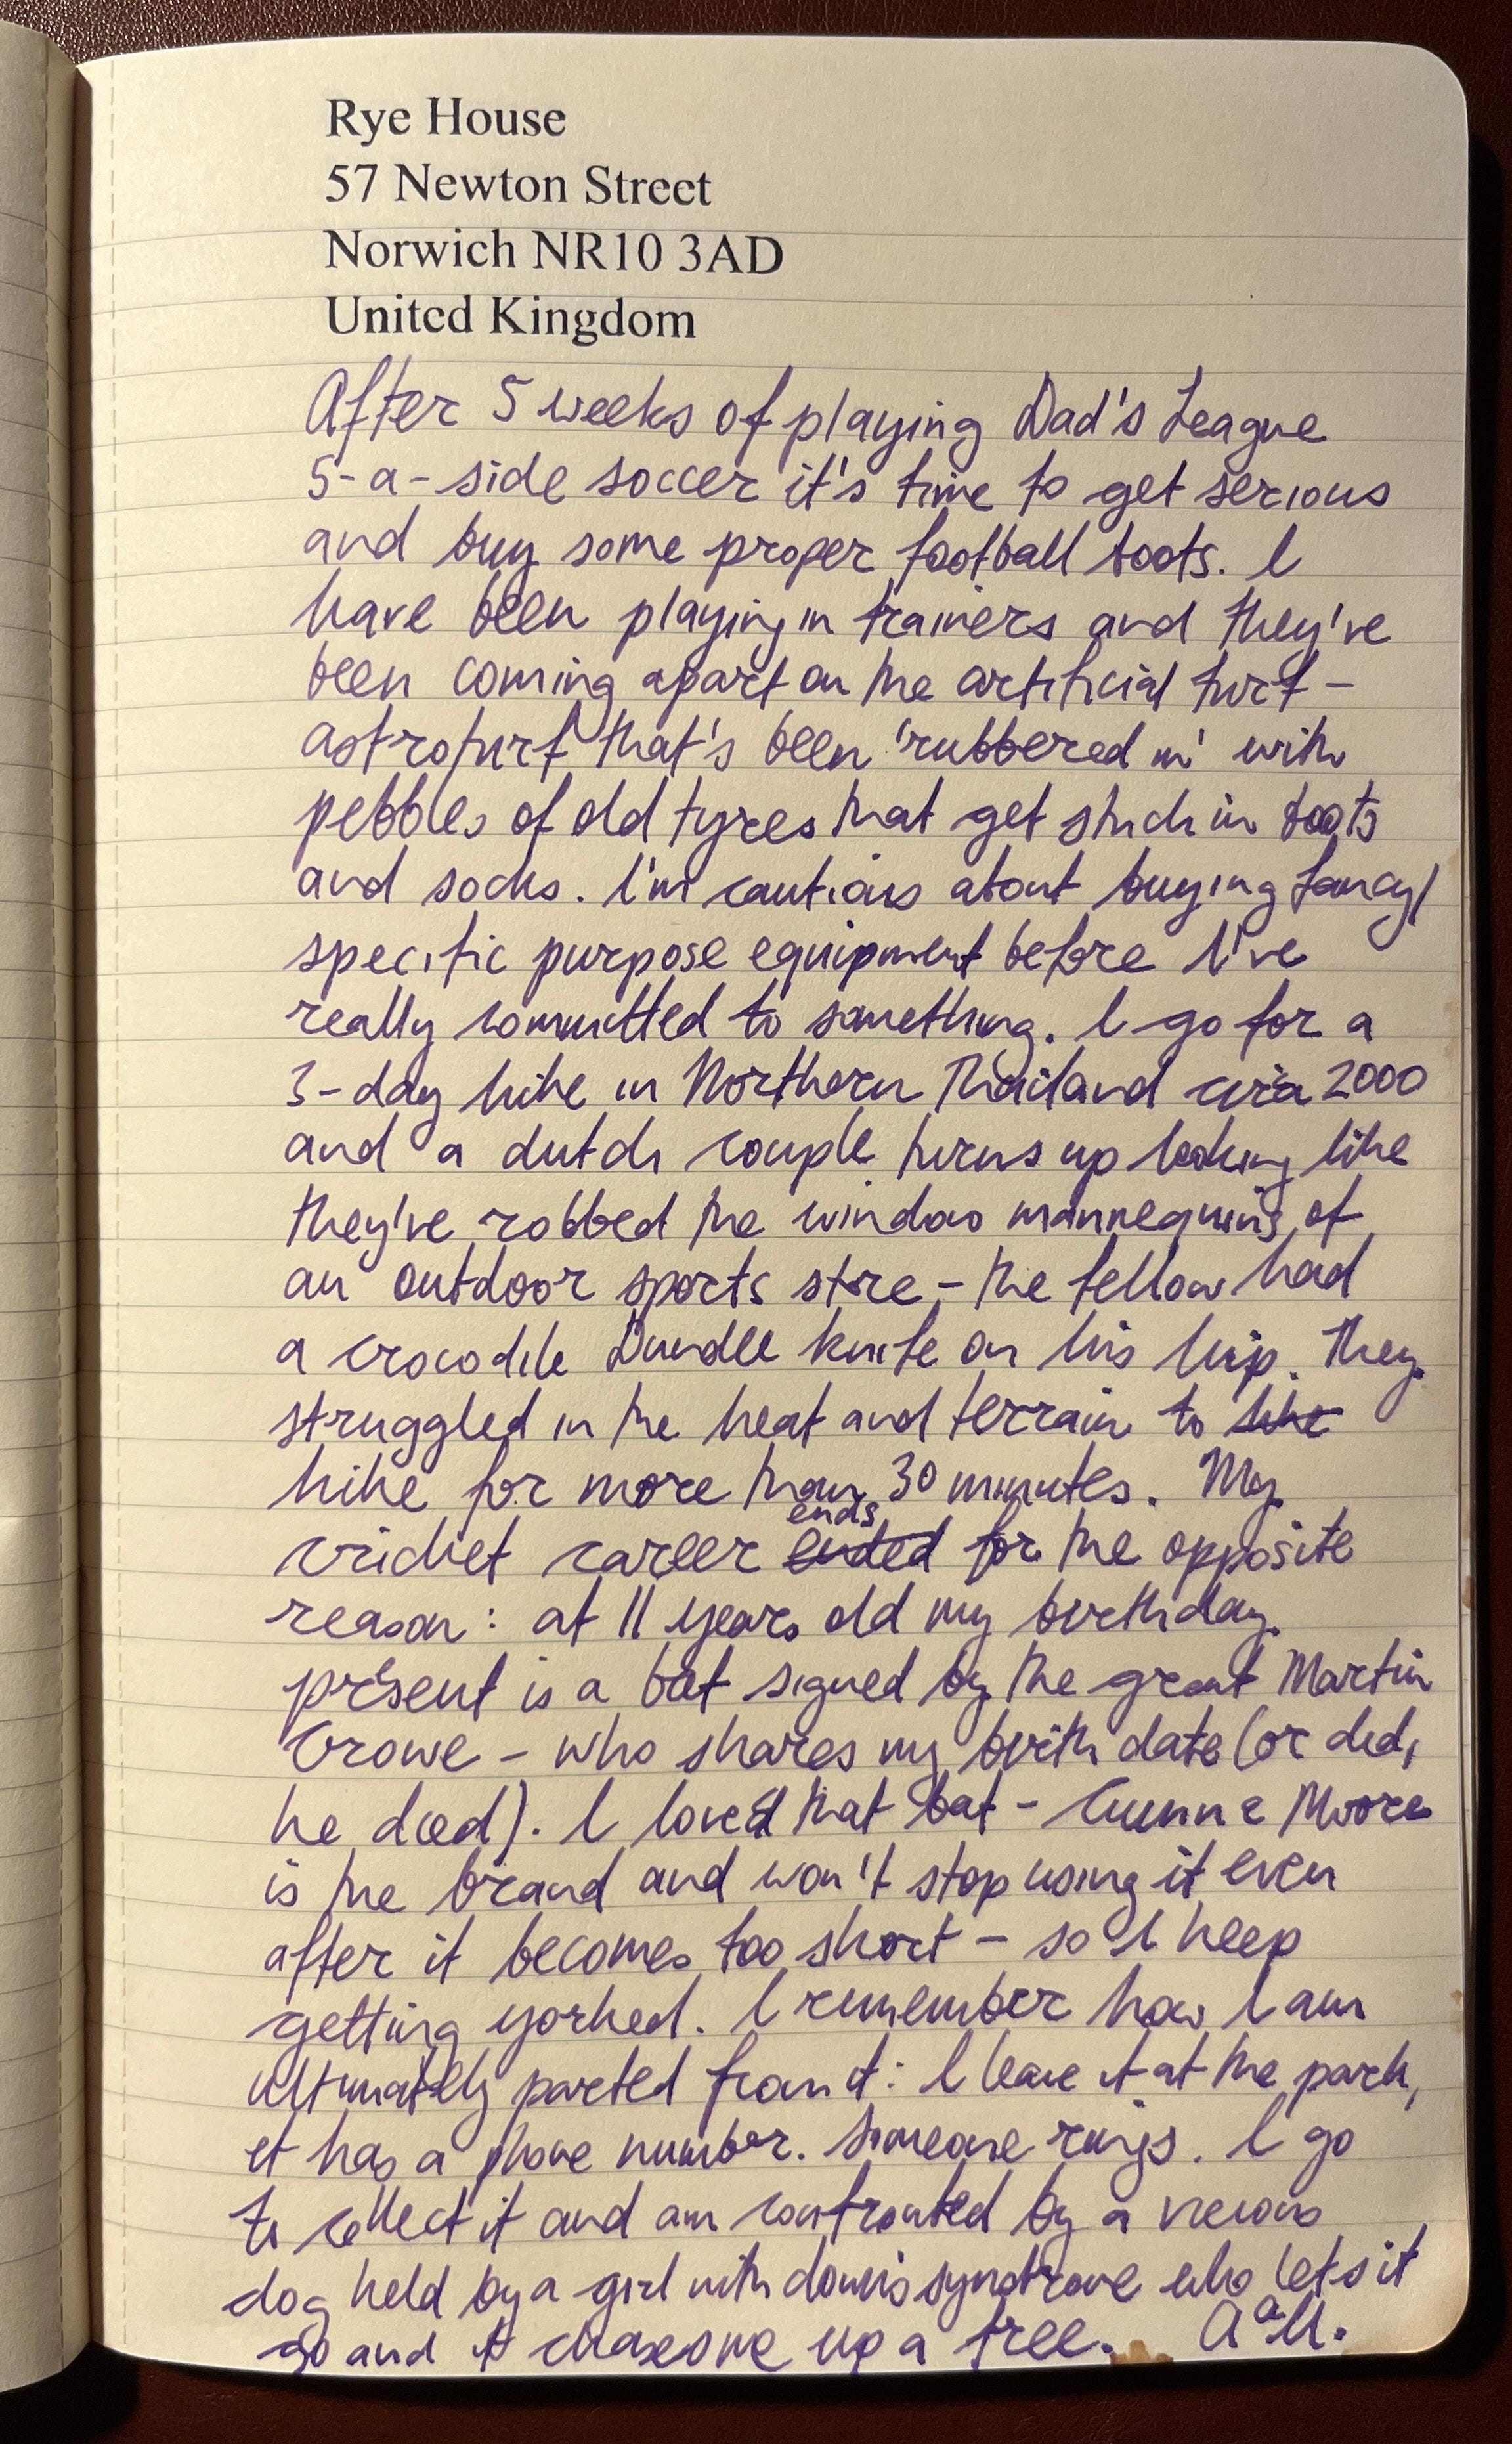 Rye House
57 Newton Street
Norwich NR10 3AD
United Kingdom
After 5 weeks of playing Dad's League
5-a-side soccer it's time to get serious
and buy some proper football boots. I
have been playing in trainers and they've
been coming apart on the artificial turf -
astroturf that's been 'rubbered in' with
pebbles of old tyres that get stuck in boots
and socks. I'm cautious about buying fancy/
specific purpose equipment before I've
really committed to something. I go for a
3-day hike in Northern Thailand circa 2000
and a dutch couple turns up looking like
they've robbed the window mannequins of
an outdoor sports store - the fellow had
a crocodile Dundee knife on his hip. They
struggled in the heat and terrain to hike
hike for more than 30 minutes. My
ends
cricket career ended for the opposite
reason: at 11 years old my birthday
present is a bat signed by the great Martin
Crowe - who shares my birth date (or did,
he died). I loved that bat - Gunn & Moore
is the brand and won't stop using it even
after it becomes too short - so I keep
getting yorked. I remember how I am
ultimately parted from it: I leave it at the park,
it has a phone number. Someone rings. I go
to collect it and am confronted by a vicious
dog held by a girl with down's syndrome who lets it
go and it chases me up a tree.